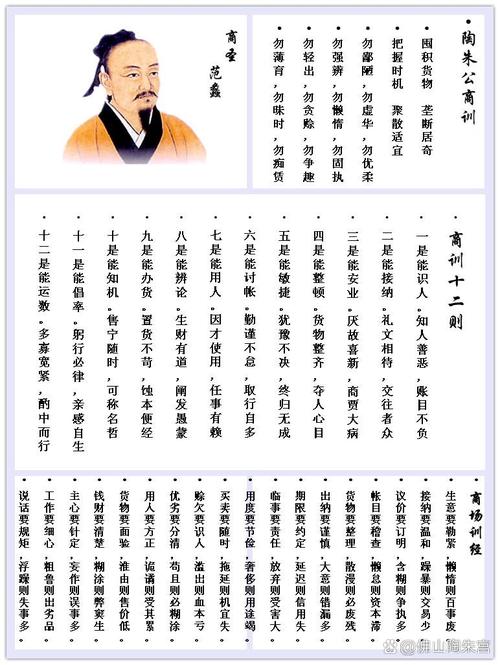 陶朱公商训
•囤积货物 垄断居奇
•把握时机 聚散适宜
•勿鄙陋,勿虚华,勿优柔
•勿强辨,勿懒惰,勿固执
•勿轻出,勿贪赊,勿争趣
•勿薄育,勿昧时,勿痴赁
商圣
范蠡
商训十二则
•一是能识人。知人善恶,账目不负
•二是能接纳。礼文相待,交往者众
•三是能安业。厌故喜新,商贾大病
•四是能整顿。货物整齐,夺人心目
•五是能敏捷。犹豫不决,终归无成
•六是能讨帐。勤谨不怠,取行自多
•七是能用人。因才使用,任事有赖
•八是能辨论。生财有道,阐发愚蒙
•九是能办货。置货不苛,蚀本便经
•十是能知机。售宁随时,可称名哲
•十一是能倡率。躬行必律,亲感自生
•十二是能运数。多寡宽紧,酌中而行
商场训经
•生意要勤紧,懒惰则百事废。
•接纳要温和,躁暴则交易少。
•议价要订明,含糊则争执多。
•帐目要稽查,懒怠则资本滞。
•货物要整理,散漫则必废残。
•出纳要谨慎,大意则错漏多。
•期限要约定,延迟则信用失。
•临事要责任,放弃则受害大。
•用度要节俭,奢侈则用途竭。
•买卖要随时,拖延则机宜失。
•赊欠要识人,滥出则血本亏。
•优劣要分清,苟且则必糊涂。
•用人要方正,诡谲则受其累。
•货物要面验,由则售价低。
•钱财要清楚,糊涂则弊窦生。
•主心要针定,妄作则误事多。
•工作要细心,粗鲁则出劣品。
•说话要规矩,浮躁则失事多。
@佛山陶朱